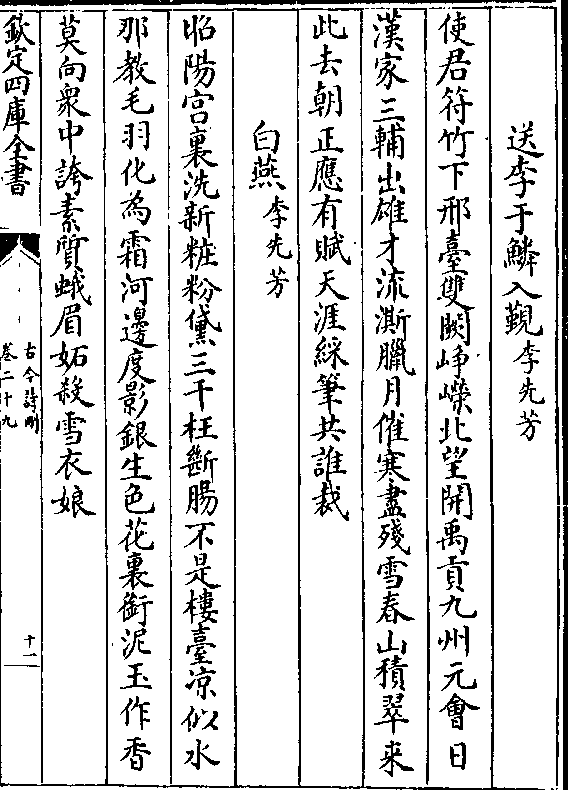 送李于鱗入覲李先芳
使君符竹下邢臺雙闕崢嶸北望開禹貢九州元會日
漢家三輔出雄才流澌臘月催寒盡殘雪春山積翠来
此去朝正應有賦天涯綵筆共誰裁
白燕李先芳
昭陽宮裏洗新粧粉黛三千枉斷腸不是樓臺凉似水
那教毛羽化為霜河邊度影銀生色花裏銜泥玉作香
莫向衆中誇素質蛾眉妬殺雪衣娘
欽定四庫全書
古今詩刪
卷二十九
十一